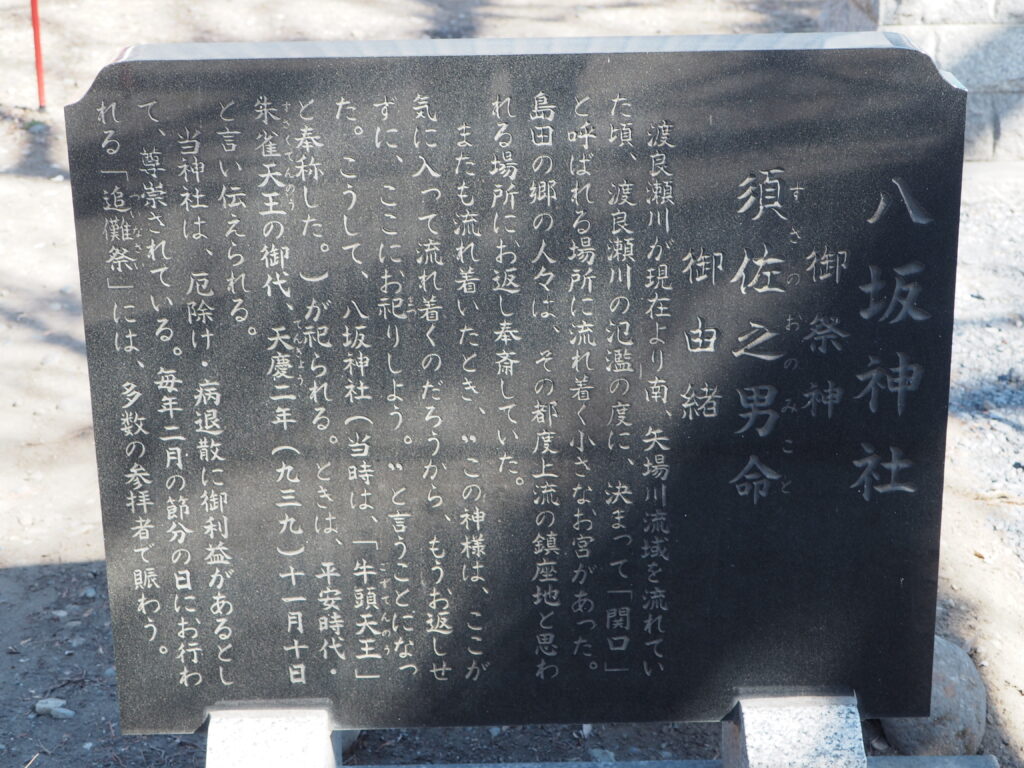 八坂神社
御祭神
須佐之男命
すさのおのみこと
御由緒
渡良瀬川が現在より南、矢場川流域を流れてい
た頃、渡良瀬川の氾濫の度に、決まって「関口」
と呼ばれる場所に流れ着く小さなお宮があった。
島田の郷の人々は、その都度上流の鎮座地と思わ
れる場所にお返し奉斎していた。
またも流れ着いたとき、〝この神様は、ここが
気に入って流れ着くのだろうから、もうお返しせ
ずに、ここにお祀りしよう。〟と言うことになっ
まつ
た。こうして、八坂神社（当時は、「牛頭天王」
ごずてんのう
と奉称した。）が祀られる。ときは、平安時代・
朱雀天王の御代、天慶二年（九三九）十一月十日
すざくてんのう
てんぎょう
と言い伝えられる。
当神社は、厄除け・病退散に御利益があるとし
て、尊崇されている。毎年二月の節分の日にお行わ
れる「追儺祭」には、多数の参拝者で賑わう。
ついなさい